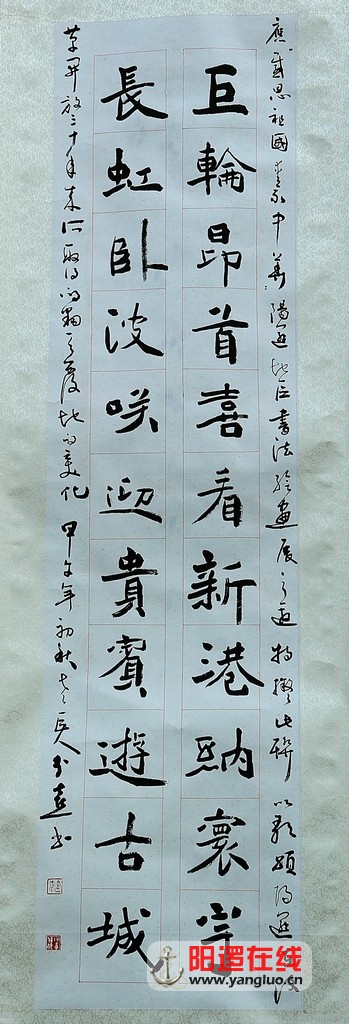 應感思祖國愛我中華陽邏地區書法繪畫展之邀 特撰此聯 以歌頌陽邏改
巨輪昂首喜看新港納寰宇
長虹臥波咲迎貴賓遊古城
革開放三十年來所取得的翻天覆地的變化 甲午年初秋 書
阳逻在线
www.yangluo.cn